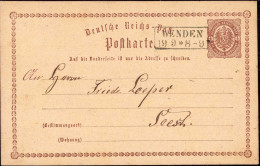 Deutsche Reichs-Post
Postkarte
WENDEN
19 8 * 8-9
Auf der Vorderseite ist nur die Adresse zu schreiben.
An Herrn
Friedr. Loeper
Soest
(Bestimmungsort)
(Wohnung)